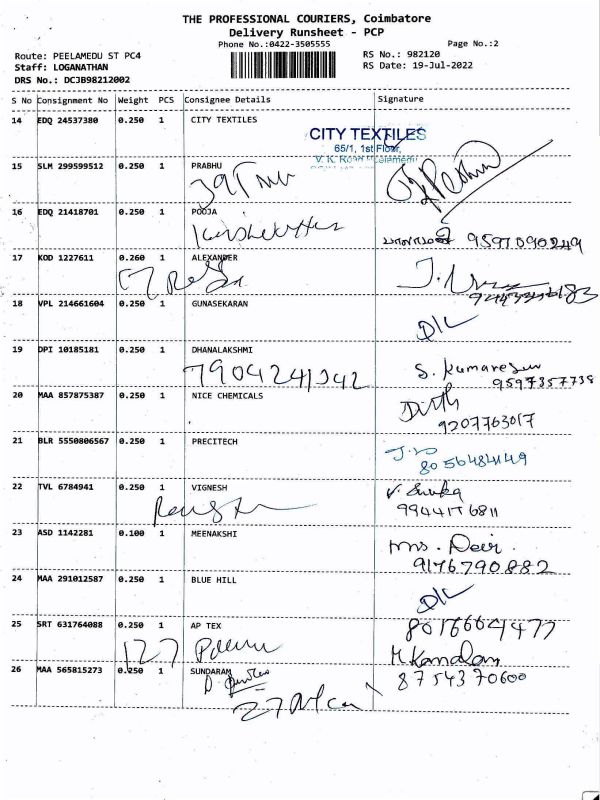 THE PROFESSIONAL COURIERS, Coimbatore
Delivery Runsheet - PCP
Phone No.:0422-3505555
Page No.:2
Route: PEELAMEDU ST PC4
RS No.: 982120
Staff: LOGANATHAN
RS Date: 19-Jul-2022
DRS No.: DCJB98212002
S No Consignment No Weight PCS Consignee Details Signature
14 EDQ 24537380 0.250 1 CITY TEXTILES
CITY TEXTILES
65/1, 1st Floor,
V. K. Road
15 SLM 299599512 0.250 1 PRABHU
16 EDQ 21418701 0.250 1 POOJA
9597090249
17 KOD 1227611 0.260 1 ALEXANDER
18 VPL 214661604 0.250 1 GUNASEKARAN
D/L
19 DPI 10185181 0.250 1 DHANALAKSHMI
7904241342 S. Kumaresan
9597357738
20 MAA 857875387 0.250 1 NICE CHEMICALS
9207763017
21 BLR 5550806567 0.250 1 PRECITECH
8056484149
22 TVL 6784941 0.250 1 VIGNESH
9944176811
23 ASD 1142281 0.100 1 MEENAKSHI
9176790882
24 MAA 291012587 0.250 1 BLUE HILL
D/L
25 SRT 631764088 0.250 1 AP TEX
127
26 MAA 565815273 0.250 1 SUNDARAM
8754370600
27